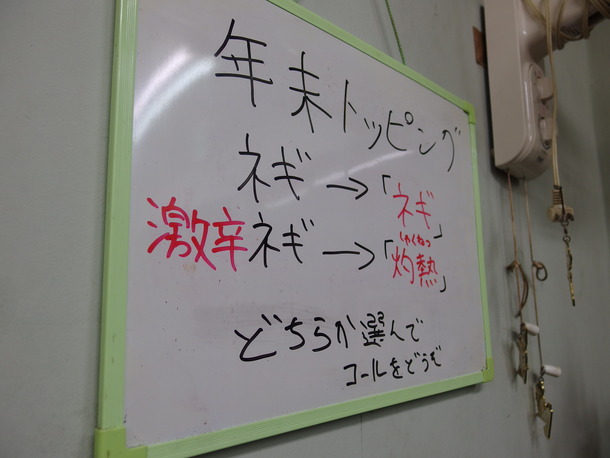 年末トッピング
ネギ→「ネギ」
激辛ネギ→「灼熱」
しゃくねつ
どちらか選んで
コールをどうぞ